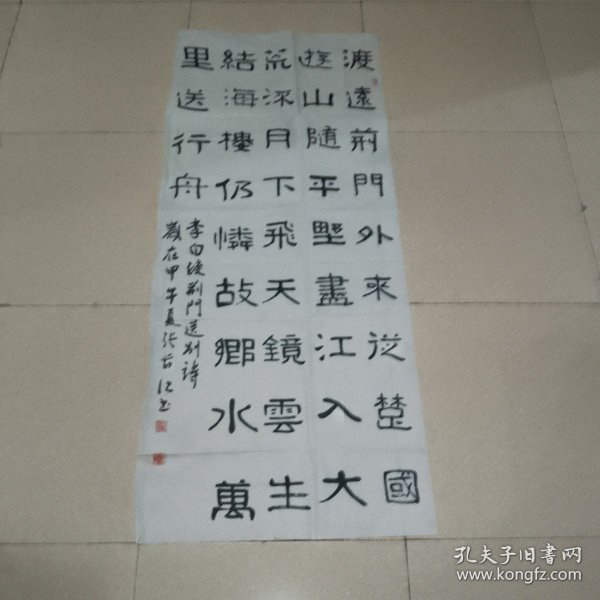 渡遠荊門外來從楚國
遊山隨平野盡江入大
荒流月下飛天鏡雲生
結海樓仍憐故鄉水萬
里送行舟
李白渡荊門送別詩
歲在甲午夏張
孔夫子旧书网
www.kongfz.com